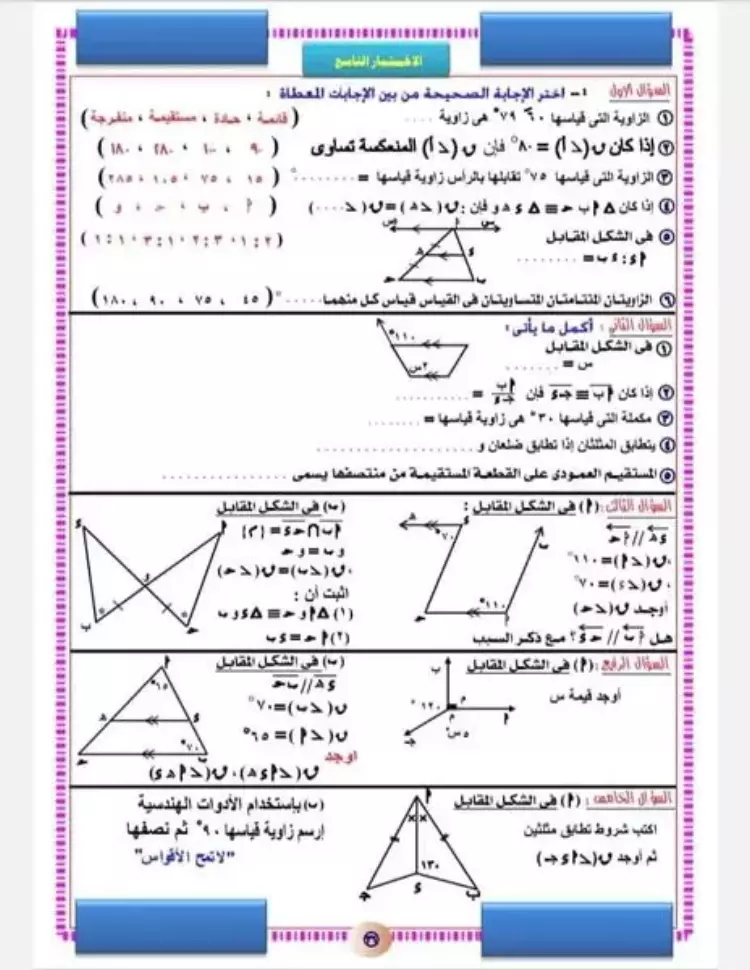 الاختبار التاسع
السؤال الأول : ١- اختر الإجابة الصحيحة من بين الإجابات المعطاة :
① الزاوية التى قياسها ٦٠ َ ٧٩° هى زاوية .... ( قائمة ، حادة ، مستقيمة ، منفرجة )
② إذا كان ن(د أ) = ٨٠° فإن ن(د أ) المنعكسة تساوى ( ٩٠ ، ١٠٠ ، ٢٨٠ ، ١٨٠ )
③ الزاوية التى قياسها ٧٥° تقابلها بالرأس زاوية قياسها = ........° ( ١٥ ، ٧٥ ، ١٠٥ ، ٢٨٥ )
④ إذا كان △ أ ب حـ ≡ △ ء هـ و فإن : ن(د هـ) = ن(د ....) ( أ ، ب ، حـ ، و )
⑤ فى الشكل المقابل
أ ء : ء ب = ........ ( ٢ : ١ ، ٣ : ٢ ، ١ : ٣ ، ١ : ١ )
س ص أ هـ ء حـ ب
⑥ الزاويتان المتتامتان المتساويتان فى القياس قياس كل منهما .....° ( ٤٥ ، ٧٥ ، ٩٠ ، ١٨٠ )
السؤال الثانى : أكمل ما يأتى :
① فى الشكل المقابل
س = .......
١١٠° ٢س
② إذا كان أ ب ≡ جـ ء فإن أ ب / جـ ء = ..........
③ مكملة التى قياسها ٣٠° هى زاوية قياسها = .......
④ يتطابق المثلثان إذا تطابق ضلعان و ....................
⑤ المستقيم العمودى على القطعة المستقيمة من منتصفها يسمى ...............
السؤال الثالث : (أ) فى الشكل المقابل :
ء هـ // أ حـ
، ن(د أ) = ١١٠°
، ن(د ء) = ٧٠°
أوجد ن(د حـ)
هل أ ب // حـ ء ؟ مع ذكر السبب
هـ ء ٧٠° ب ١١٠° حـ أ
(ب) فى الشكل المقابل
أ ب ∩ حـ ء = {م}
و ب = و حـ
، ن(د ب) = ن(د حـ)
اثبت أن :
(١) △ أ و حـ ≡ △ ء و ب
(٢) أ حـ = ء ب
ء أ و ب حـ
السؤال الرابع : (أ) فى الشكل المقابل
أوجد قيمة س
ب م ١٢٠° م أ ٥س° جـ
(ب) فى الشكل المقابل
ء هـ // ب حـ
ن(د ب) = ٧٠°
ن(د أ) = ٦٥°
اوجد
ن(د أ ء هـ) ، ن(د أ هـ ء)
أ ٦٥° هـ ء ٧٠° حـ ب
السؤال الخامس : (أ) فى الشكل المقابل
اكتب شروط تطابق مثلثين
ثم أوجد ن(د أ ء جـ)
أ ١٣٠ جـ ء ب
(ب) بإستخدام الأدوات الهندسية
إرسم زاوية قياسها ٩٠° ثم نصفها
"لاتمح الأقواس"